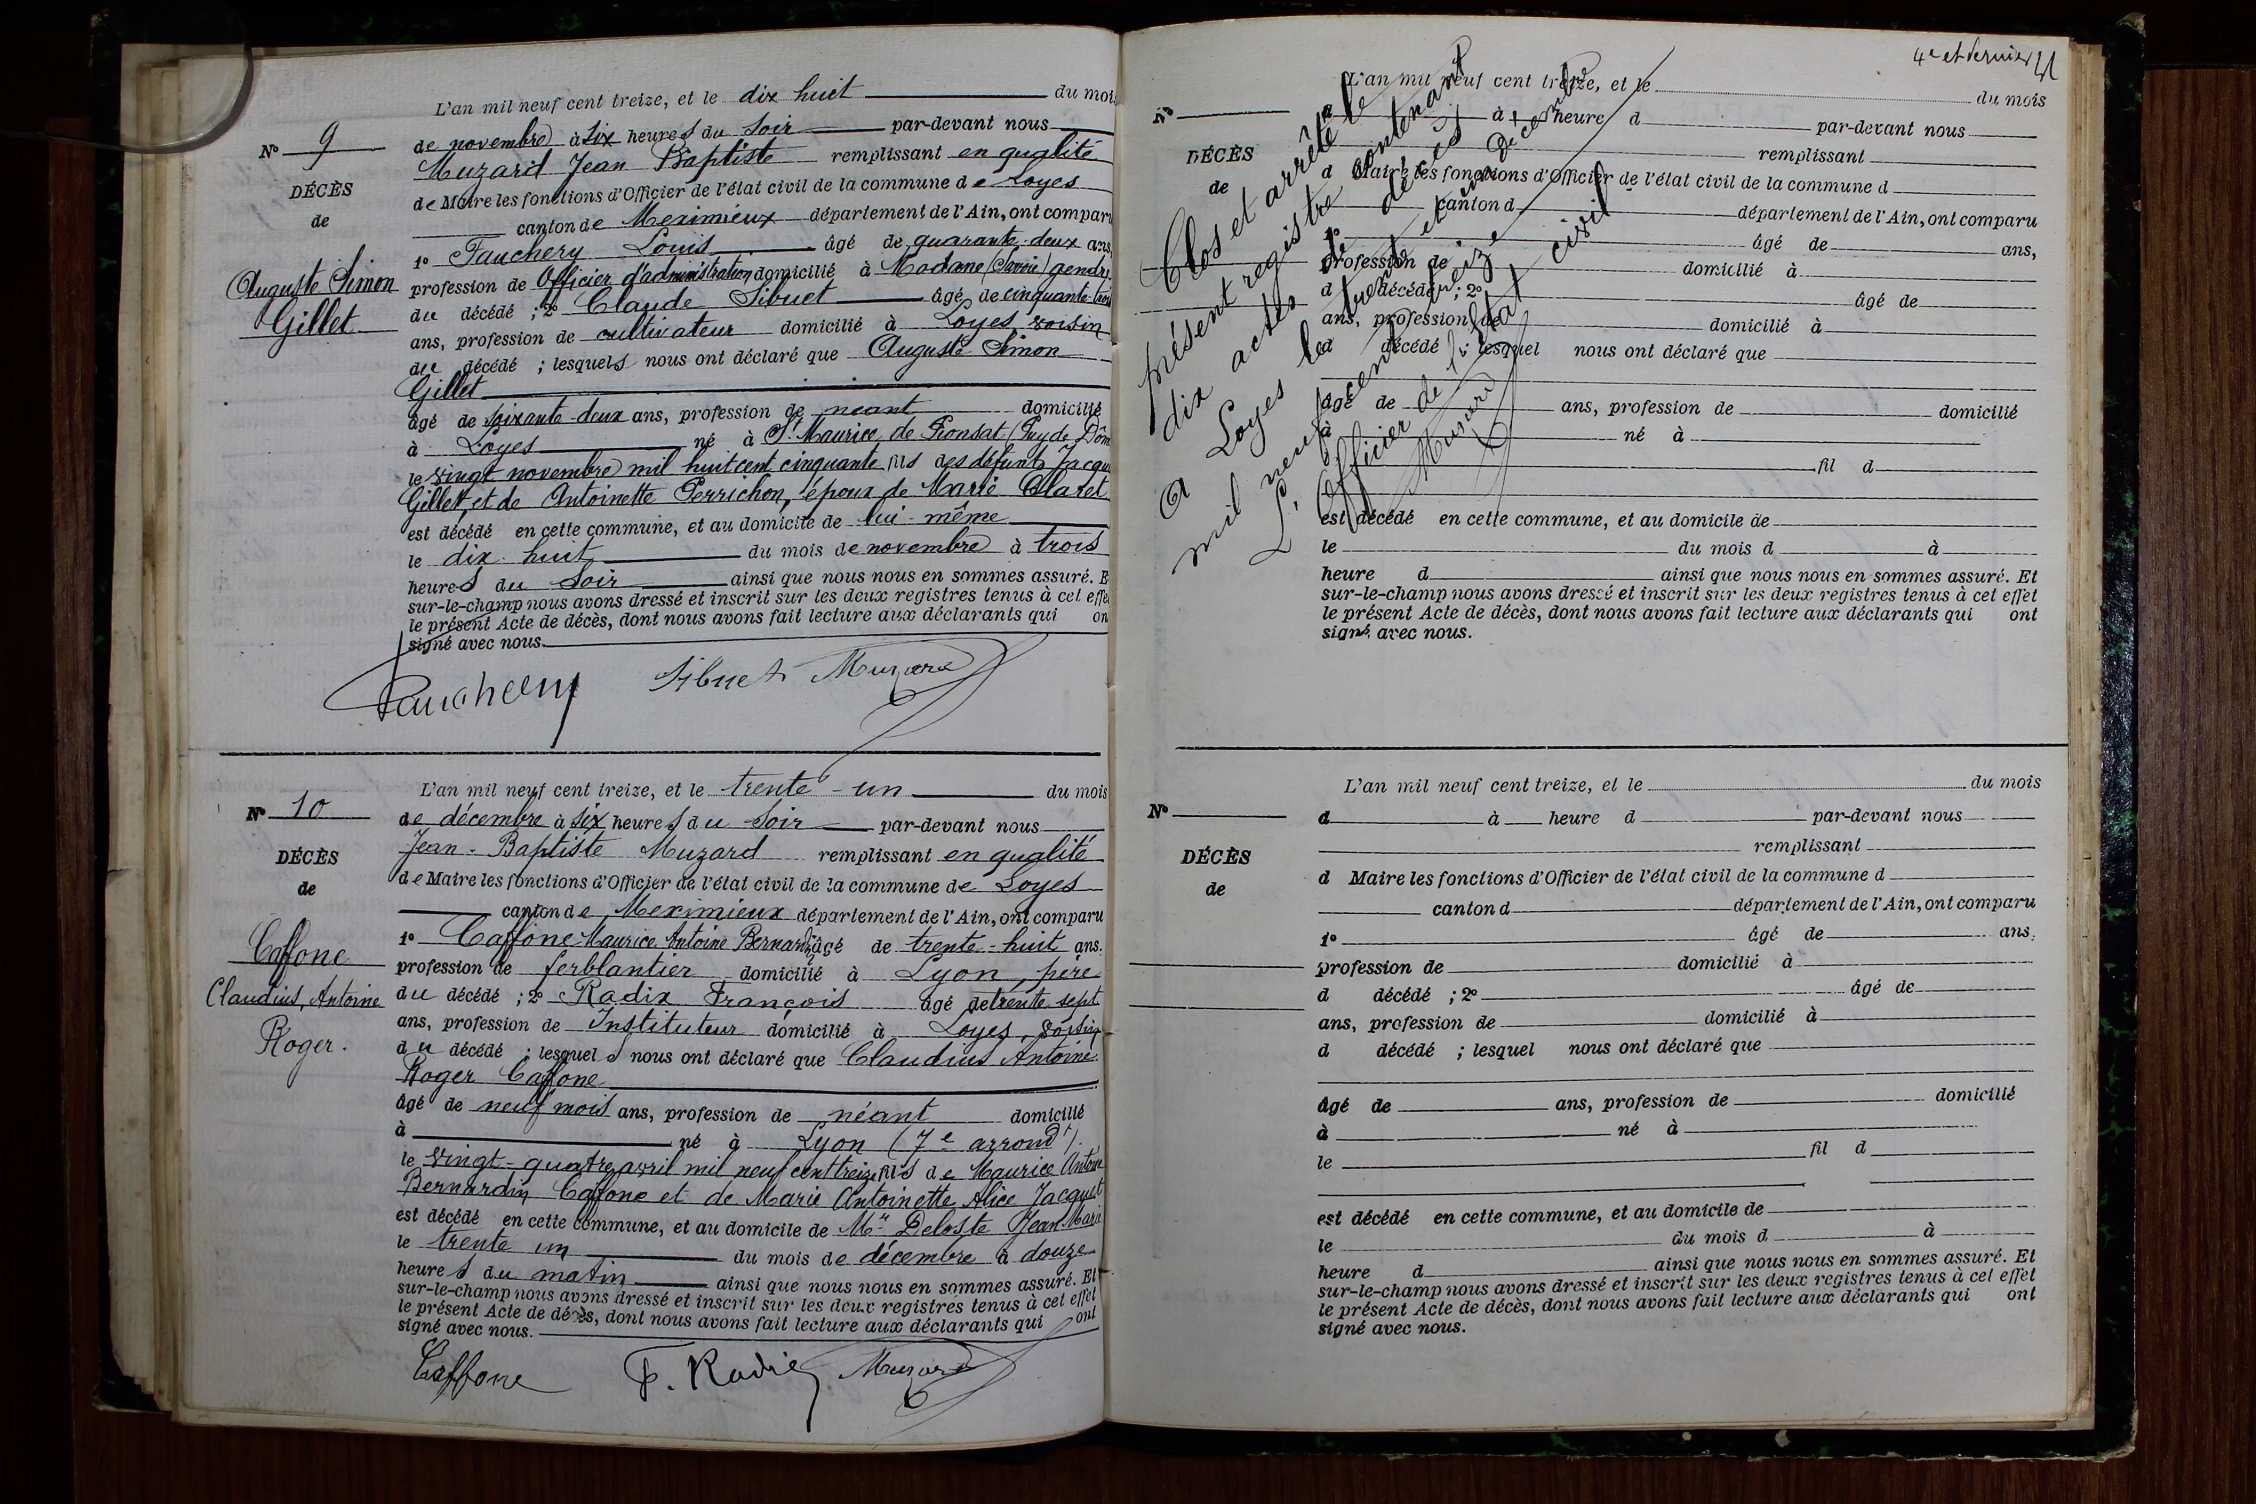 L'an mil neuf cent treize, et le dix huit du mois
N° 9
de novembre à six heures du soir par-devant nous
Muzard Jean Baptiste remplissant en qualité
DÉCÈS
de Maire les fonctions d'Officier de l'état civil de la commune de Loyes
de
canton de Meximieux département de l'Ain, ont comparu
1° Fauchery Louis âgé de quarante-deux ans,
Auguste Simon
profession de Officier d'administration domicilié à Modane (Savoie) gendre
Gillet
du décédé ; 2° Claude Sibuet âgé de cinquante-trois
ans, profession de cultivateur domicilié à Loyes, voisin
du décédé ; lesquels nous ont déclaré que Auguste Simon
Gillet
âgé de soixante-deux ans, profession de néant domicilié
à Loyes né à St Maurice de Pionsat (Puy de Dôm
le vingt novembre mil huit cent cinquante fils des défunts Jacqu
Gillet et de Antoinette Perrichon, époux de Marie Claret
est décédé en cette commune, et au domicile de lui-même
le dix huit du mois de novembre à trois
heures du soir ainsi que nous nous en sommes assuré. E
sur-le-champ nous avons dressé et inscrit sur les deux registres tenus à cet effe
le présent Acte de décès, dont nous avons fait lecture aux déclarants qui on
signé avec nous.
Fauchery Sibuet Muzard
L'an mil neuf cent treize, et le trente-un du mois
N° 10
de décembre à six heures du soir par-devant nous
Jean-Baptiste Muzard remplissant en qualité
DÉCÈS
de Maire les fonctions d'Officier de l'état civil de la commune de Loyes
de
canton de Meximieux département de l'Ain, ont comparu
1° Caffone Maurice Antoine Bernardin âgé de trente-huit ans.
Caffone
profession de ferblantier domicilié à Lyon, père
Claudius, Antoine
du décédé ; 2° Radix François âgé de trente sept
ans, profession de Instituteur domicilié à Loyes, voisin
Roger.
du décédé ; lesquels nous ont déclaré que Claudius Antoine
Roger Caffone
âgé de neuf mois ans, profession de néant domicilié
à né à Lyon (7e arrondt).
le vingt-quatre avril mil neuf cent treize fils de Maurice Antoine
Bernardin Caffone et de Marie Antoinette Alice Jacquet
est décédé en cette commune, et au domicile de Mr Deloste Jean Marie
le trente un du mois de décembre à douze
heures du matin ainsi que nous nous en sommes assuré. Et
sur-le-champ nous avons dressé et inscrit sur les deux registres tenus à cet effet
le présent Acte de décès, dont nous avons fait lecture aux déclarants qui ont
signé avec nous.
Caffone F. Radix Muzard
4e et dernier
L'an mil neuf cent treize, et le du mois
N°
à heure d par-devant nous
remplissant
DÉCÈS
d Maire les fonctions d'Officier de l'état civil de la commune d
de
canton d département de l'Ain, ont comparu
1° âgé de ans,
profession de domicilié à
d décédé ; 2° âgé de
ans, profession de domicilié à
d décédé ; lesquel nous ont déclaré que
âgé de ans, profession de domicilié
à né à
fil d
est décédé en cette commune, et au domicile de
le du mois d à
heure d ainsi que nous nous en sommes assuré. Et
sur-le-champ nous avons dressé et inscrit sur les deux registres tenus à cet effet
le présent Acte de décès, dont nous avons fait lecture aux déclarants qui ont
signé avec nous.
Clos et arrêté le
présent registre contenant
dix actes de décès
A Loyes le trente et un décembre
mil neuf cent treize
L'Officier de l'état civil
Muzard
L'an mil neuf cent treize, et le du mois
N°
d à heure d par-devant nous
remplissant
DÉCÈS
d Maire les fonctions d'Officier de l'état civil de la commune d
de
canton d département de l'Ain, ont comparu
1° âgé de ans,
profession de domicilié à
d décédé ; 2° âgé de
ans, profession de domicilié à
d décédé ; lesquel nous ont déclaré que
âgé de ans, profession de domicilié
à né à
le fil d
est décédé en cette commune, et au domicile de
le du mois d à
heure d ainsi que nous nous en sommes assuré. Et
sur-le-champ nous avons dressé et inscrit sur les deux registres tenus à cet effet
le présent Acte de décès, dont nous avons fait lecture aux déclarants qui ont
signé avec nous.